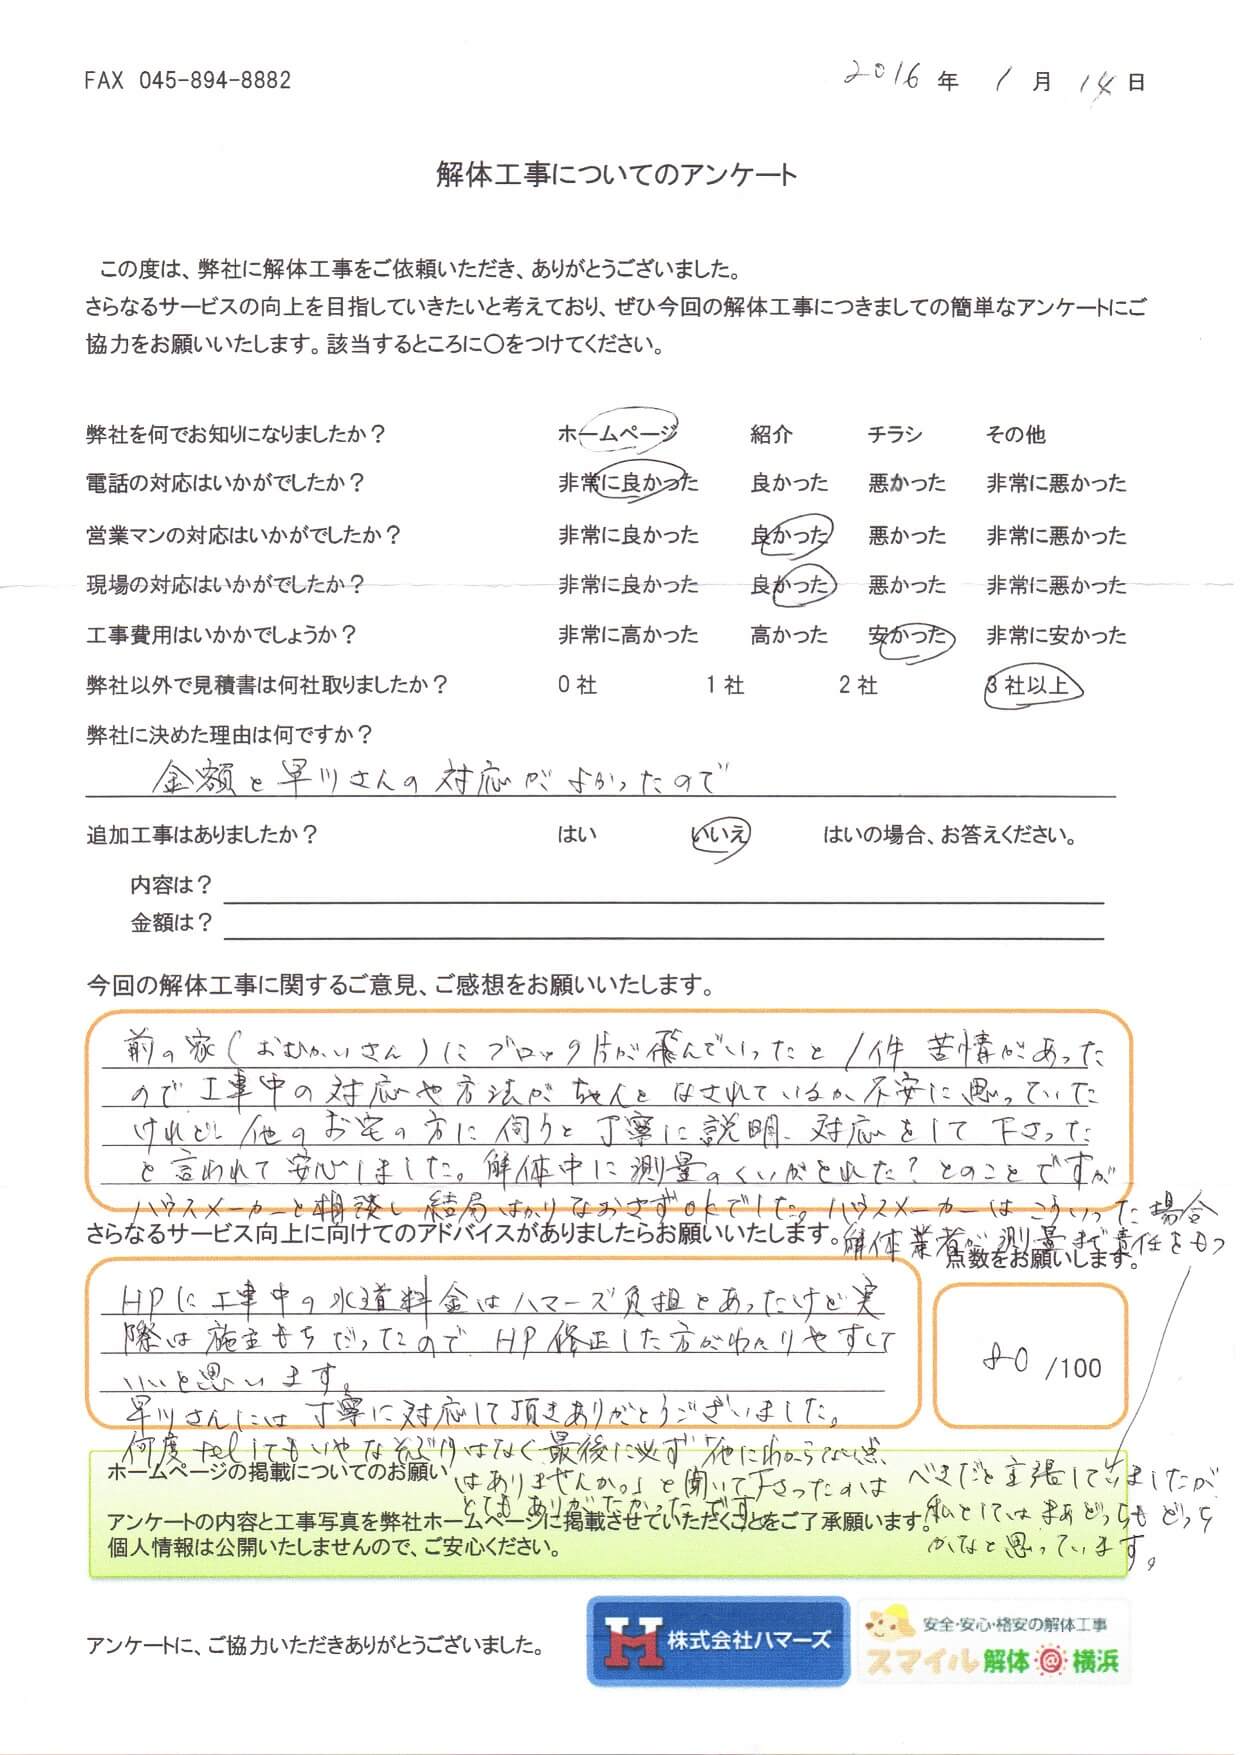 FAX 045-894-8882
2016 年 1 月 14 日
解体工事についてのアンケート
この度は、弊社に解体工事をご依頼いただき、ありがとうございました。
さらなるサービスの向上を目指していきたいと考えており、ぜひ今回の解体工事につきましての簡単なアンケートにご
協力をお願いいたします。該当するところに〇をつけてください。
弊社を何でお知りになりましたか？ ホームページ 紹介 チラシ その他
電話の対応はいかがでしたか？ 非常に良かった 良かった 悪かった 非常に悪かった
営業マンの対応はいかがでしたか？ 非常に良かった 良かった 悪かった 非常に悪かった
現場の対応はいかがでしたか？ 非常に良かった 良かった 悪かった 非常に悪かった
工事費用はいかかでしょうか？ 非常に高かった 高かった 安かった 非常に安かった
弊社以外で見積書は何社取りましたか？ 0 社 1 社 2 社 3 社以上
弊社に決めた理由は何ですか？
金額と早川さんの対応がよかったので
追加工事はありましたか？ はい いいえ はいの場合、お答えください。
内容は？
金額は？
今回の解体工事に関するご意見、ご感想をお願いいたします。
前の家(おむかいさん)にブロック片が飛んでいったと1件苦情があった
ので工事中の対応や方法がちゃんとなされているか不安に思っていた
けれど、他のお宅の方に伺うと丁寧に説明、対応をして下さった
と言われて安心しました。解体中に測量のくいがとれた？とのことですが
ハウスメーカーと相談し結局はかりなおさずOKでした。ハウスメーカーはこういった場合
解体業者が測量まで責任をもつ
べきだと主張していましたが
私としてはまあどっちもどっち
かなと思っています。
さらなるサービス向上に向けてのアドバイスがありましたらお願いいたします。
点数をお願いします。
HPに工事中の水道料金はハマーズ負担とあったけど実
際は施主もちだったのでHP修正した方がわかりやすくて
いいと思います。
早川さんには丁寧に対応して頂きありがとうございました。
何度telしてもいやなそぶりはなく最後に必ず「他にわからない点
はありませんか。」と聞いて下さったのは
とてもありがたかったです。
80 /100
ホームページの掲載についてのお願い
アンケートの内容と工事写真を弊社ホームページに掲載させていただくことをご了承願います。
個人情報は公開いたしませんので、ご安心ください。
アンケートに、ご協力いただきありがとうございました。
H 株式会社ハマーズ
安全・安心・格安の解体工事
スマイル解体@横浜